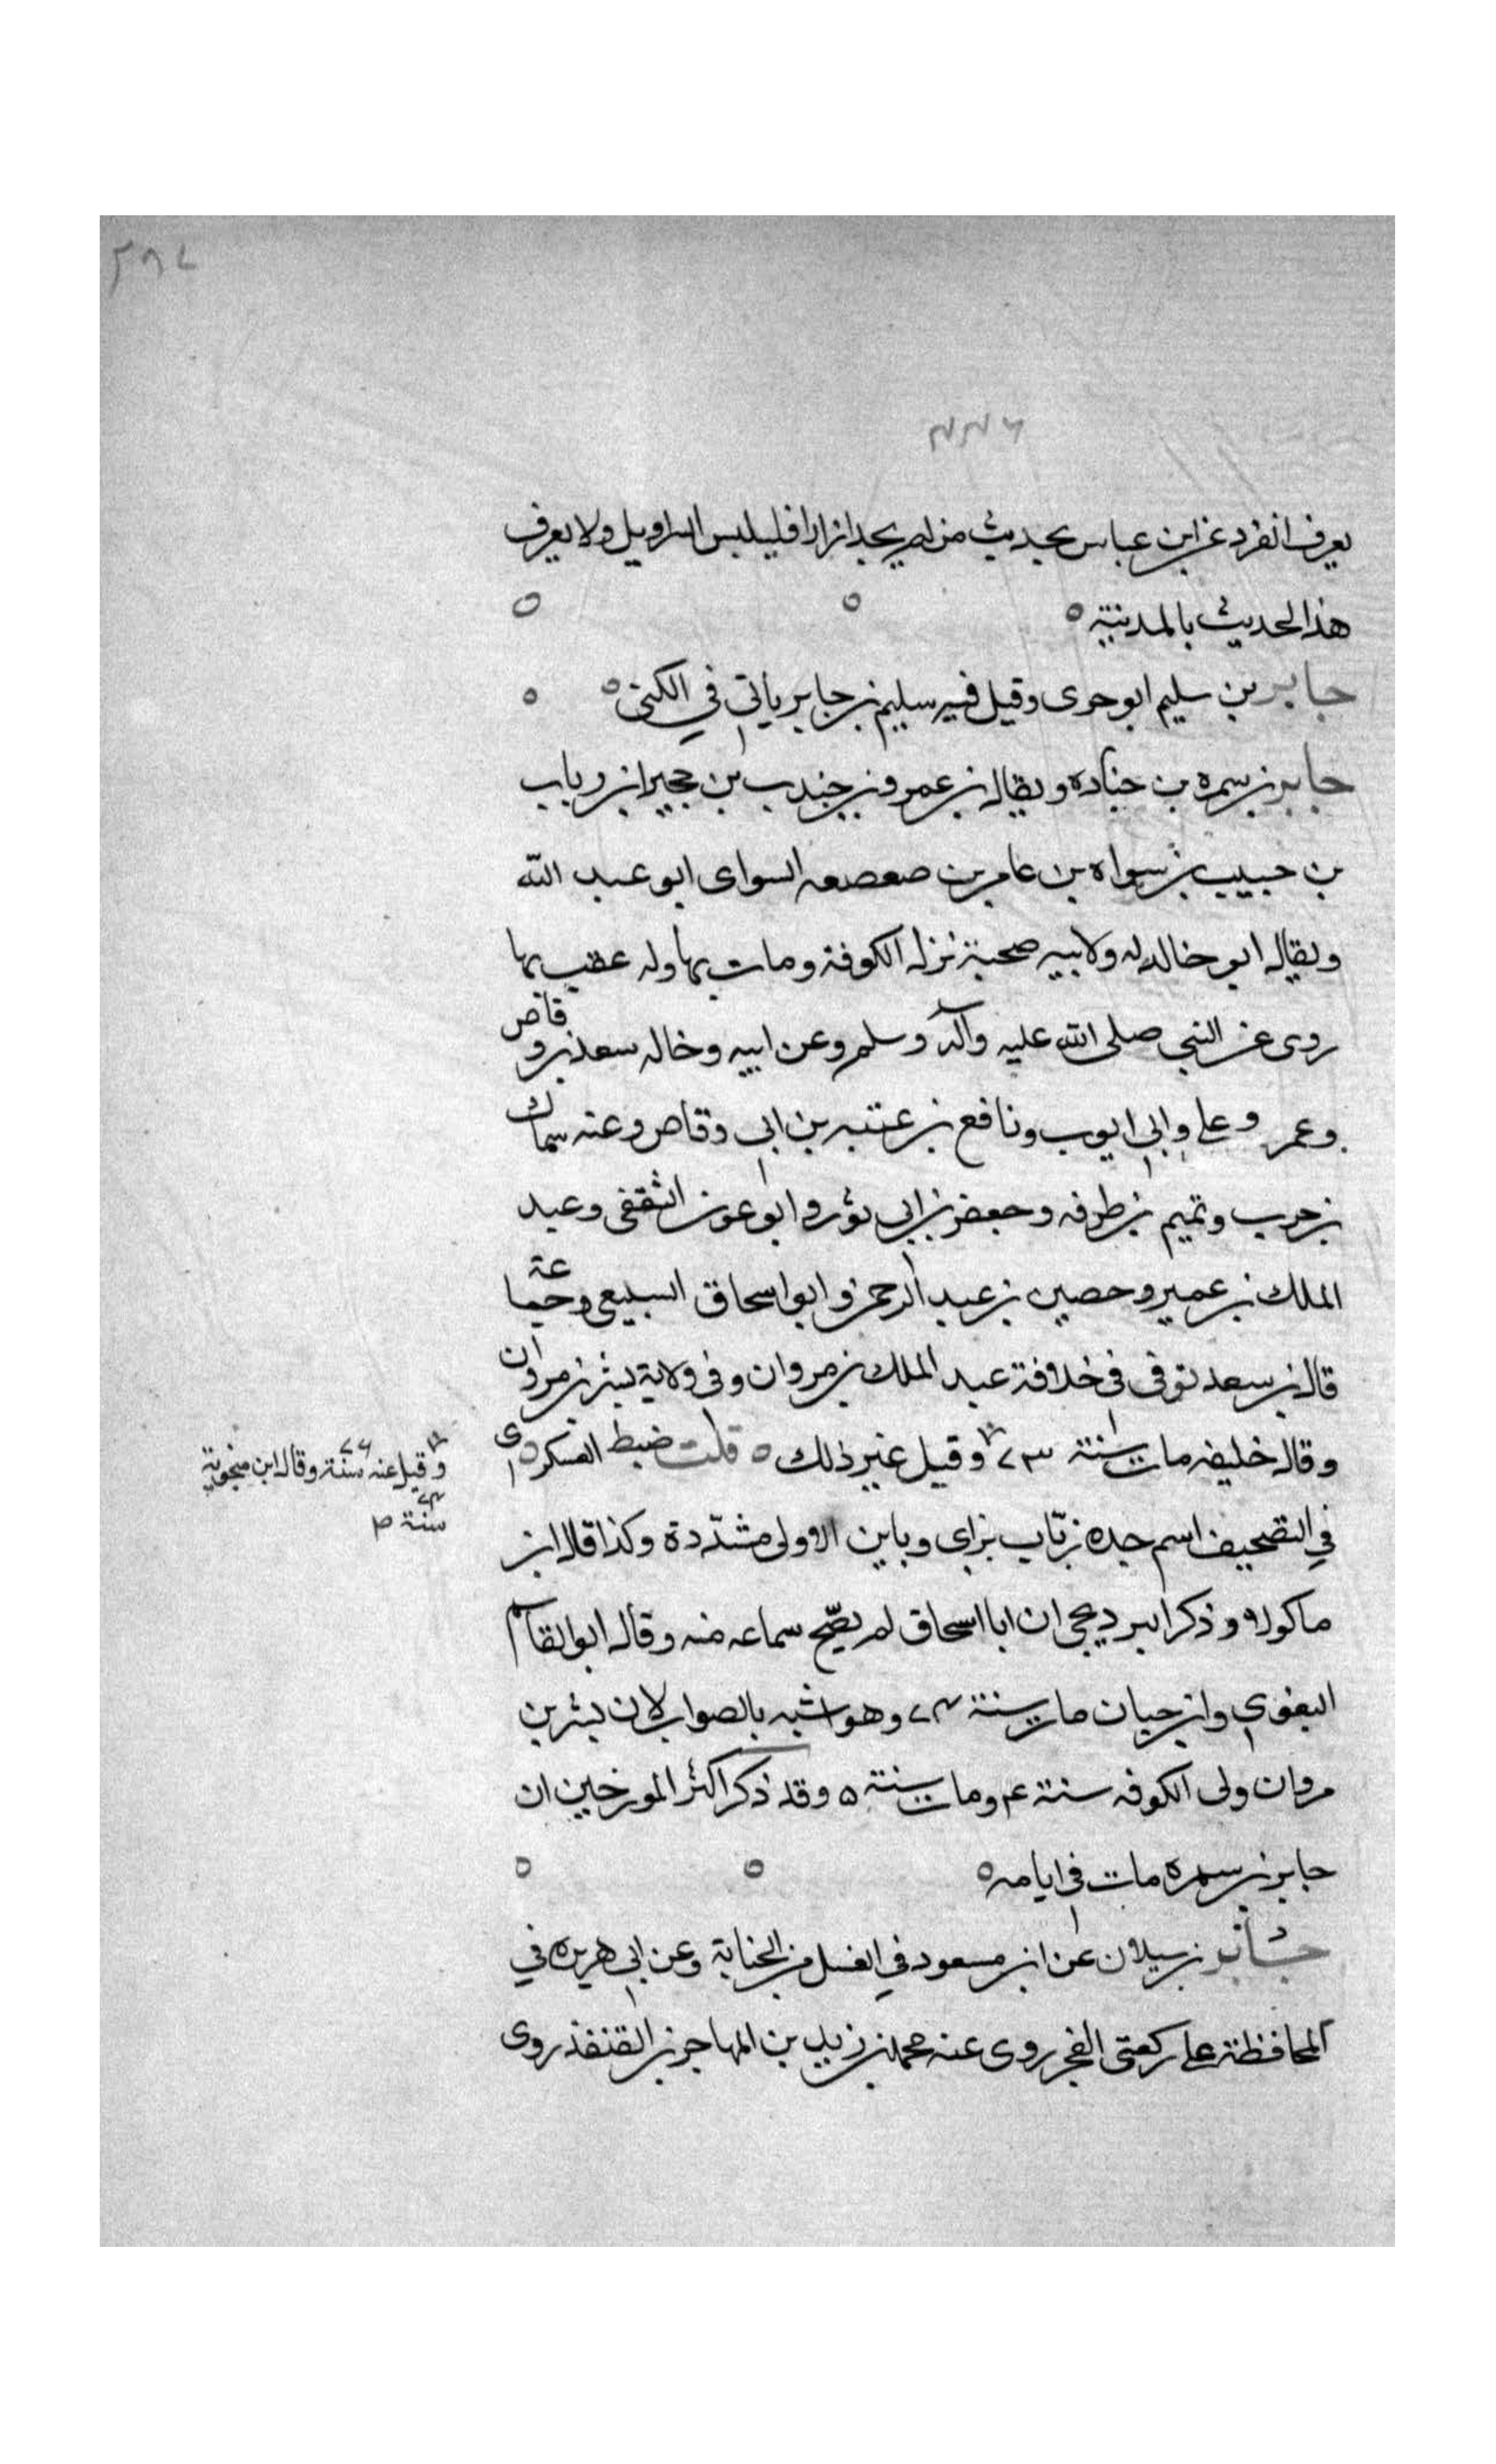 يعرف انفرد عن ابن عباس بحديث من لم يجد ازارا فليلبس السراويل ولا يعرف
هذا الحديث بالمدينة ه
جابر بن سليم ابو جرى وقيل فيه سليم بن جابر ياتي في الكنى ه
جابر بن سمره بن جناده ويقال بن عمرو بن جندب بن حجير ابن رباب
بن حبيب بن سواه بن عامر بن صعصعه السواى ابو عبد الله
ويقال ابو خالد له ولابيه صحبة نزل الكوفة ومات بها وله عقب بها
روى عن النبي صلى الله عليه وآله وسلم وعن ابيه وخاله سعد بن وقاص
وعمر وعلي وابي ايوب ونافع بن عتبه بن ابي وقاص وعنه سماك
بن حرب وتميم بن طرفه وجعفر بن ابي ثور وابو عون الثقفى وعبد
الملك بن عمير وحصين بن عبد الرحمن وابو اسحاق السبيعي وجماعة
قال بن سعد توفى فى خلافة عبد الملك بن مروان وفى ولاية بشر بن مروان
وقال خليفه مات سنة ٧٣ وقيل غير ذلك ه قلت ضبط العسكرى
وقيل عنه سنة ٧٦ وقال ابن منجوية
سنة ٧٤ ص
في التصحيف اسم جده زبّاب بزاى وباين الاولى مشدّدة وكذا قال ابن
ماكولا وذكر البرديجى ان ابا اسحاق لم يصّح سماعه منه وقال ابو القاسم
البغوي وابن حبان مات سنة ٧٤ وهو اشبه بالصواب لان بشر بن
مروان ولى الكوفه سنة ٤ ومات سنة ٥ وقد ذكر اكثر المورخين ان
جابر بن سمره مات فى ايامه ه
جابر بن سيلان عن ابن مسعود في الغسل من الجنابة وعن ابى هريره في
المحافظة على ركعتى الفجر روى عنه محمد بن زيد بن المهاجر بن القنفذ روى